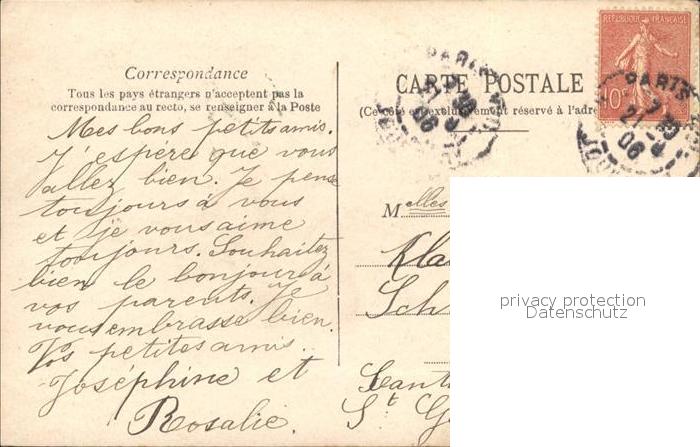 Correspondance
Tous les pays étrangers n'acceptent pas la
correspondance au recto, se renseigner à la Poste
Mes bons petits amis.
J'espère que vous
allez bien. Je pense
toujours à vous
et je vous aime
toujours. Souhaitez
bien le bonjour à
vos parents. Je
vous embrasse bien.
Vos petites amis.
Joséphine et
Rosalie.
CARTE POSTALE
(Ce côté est exclusivement réservé à l'adre
REPUBLIQUE FRANÇAISE
10c
PARIS
7 30
21
06
PARIS
7 30
21
06
Melles
Kla
Sch
Cant
St G
privacy protection
Datenschutz